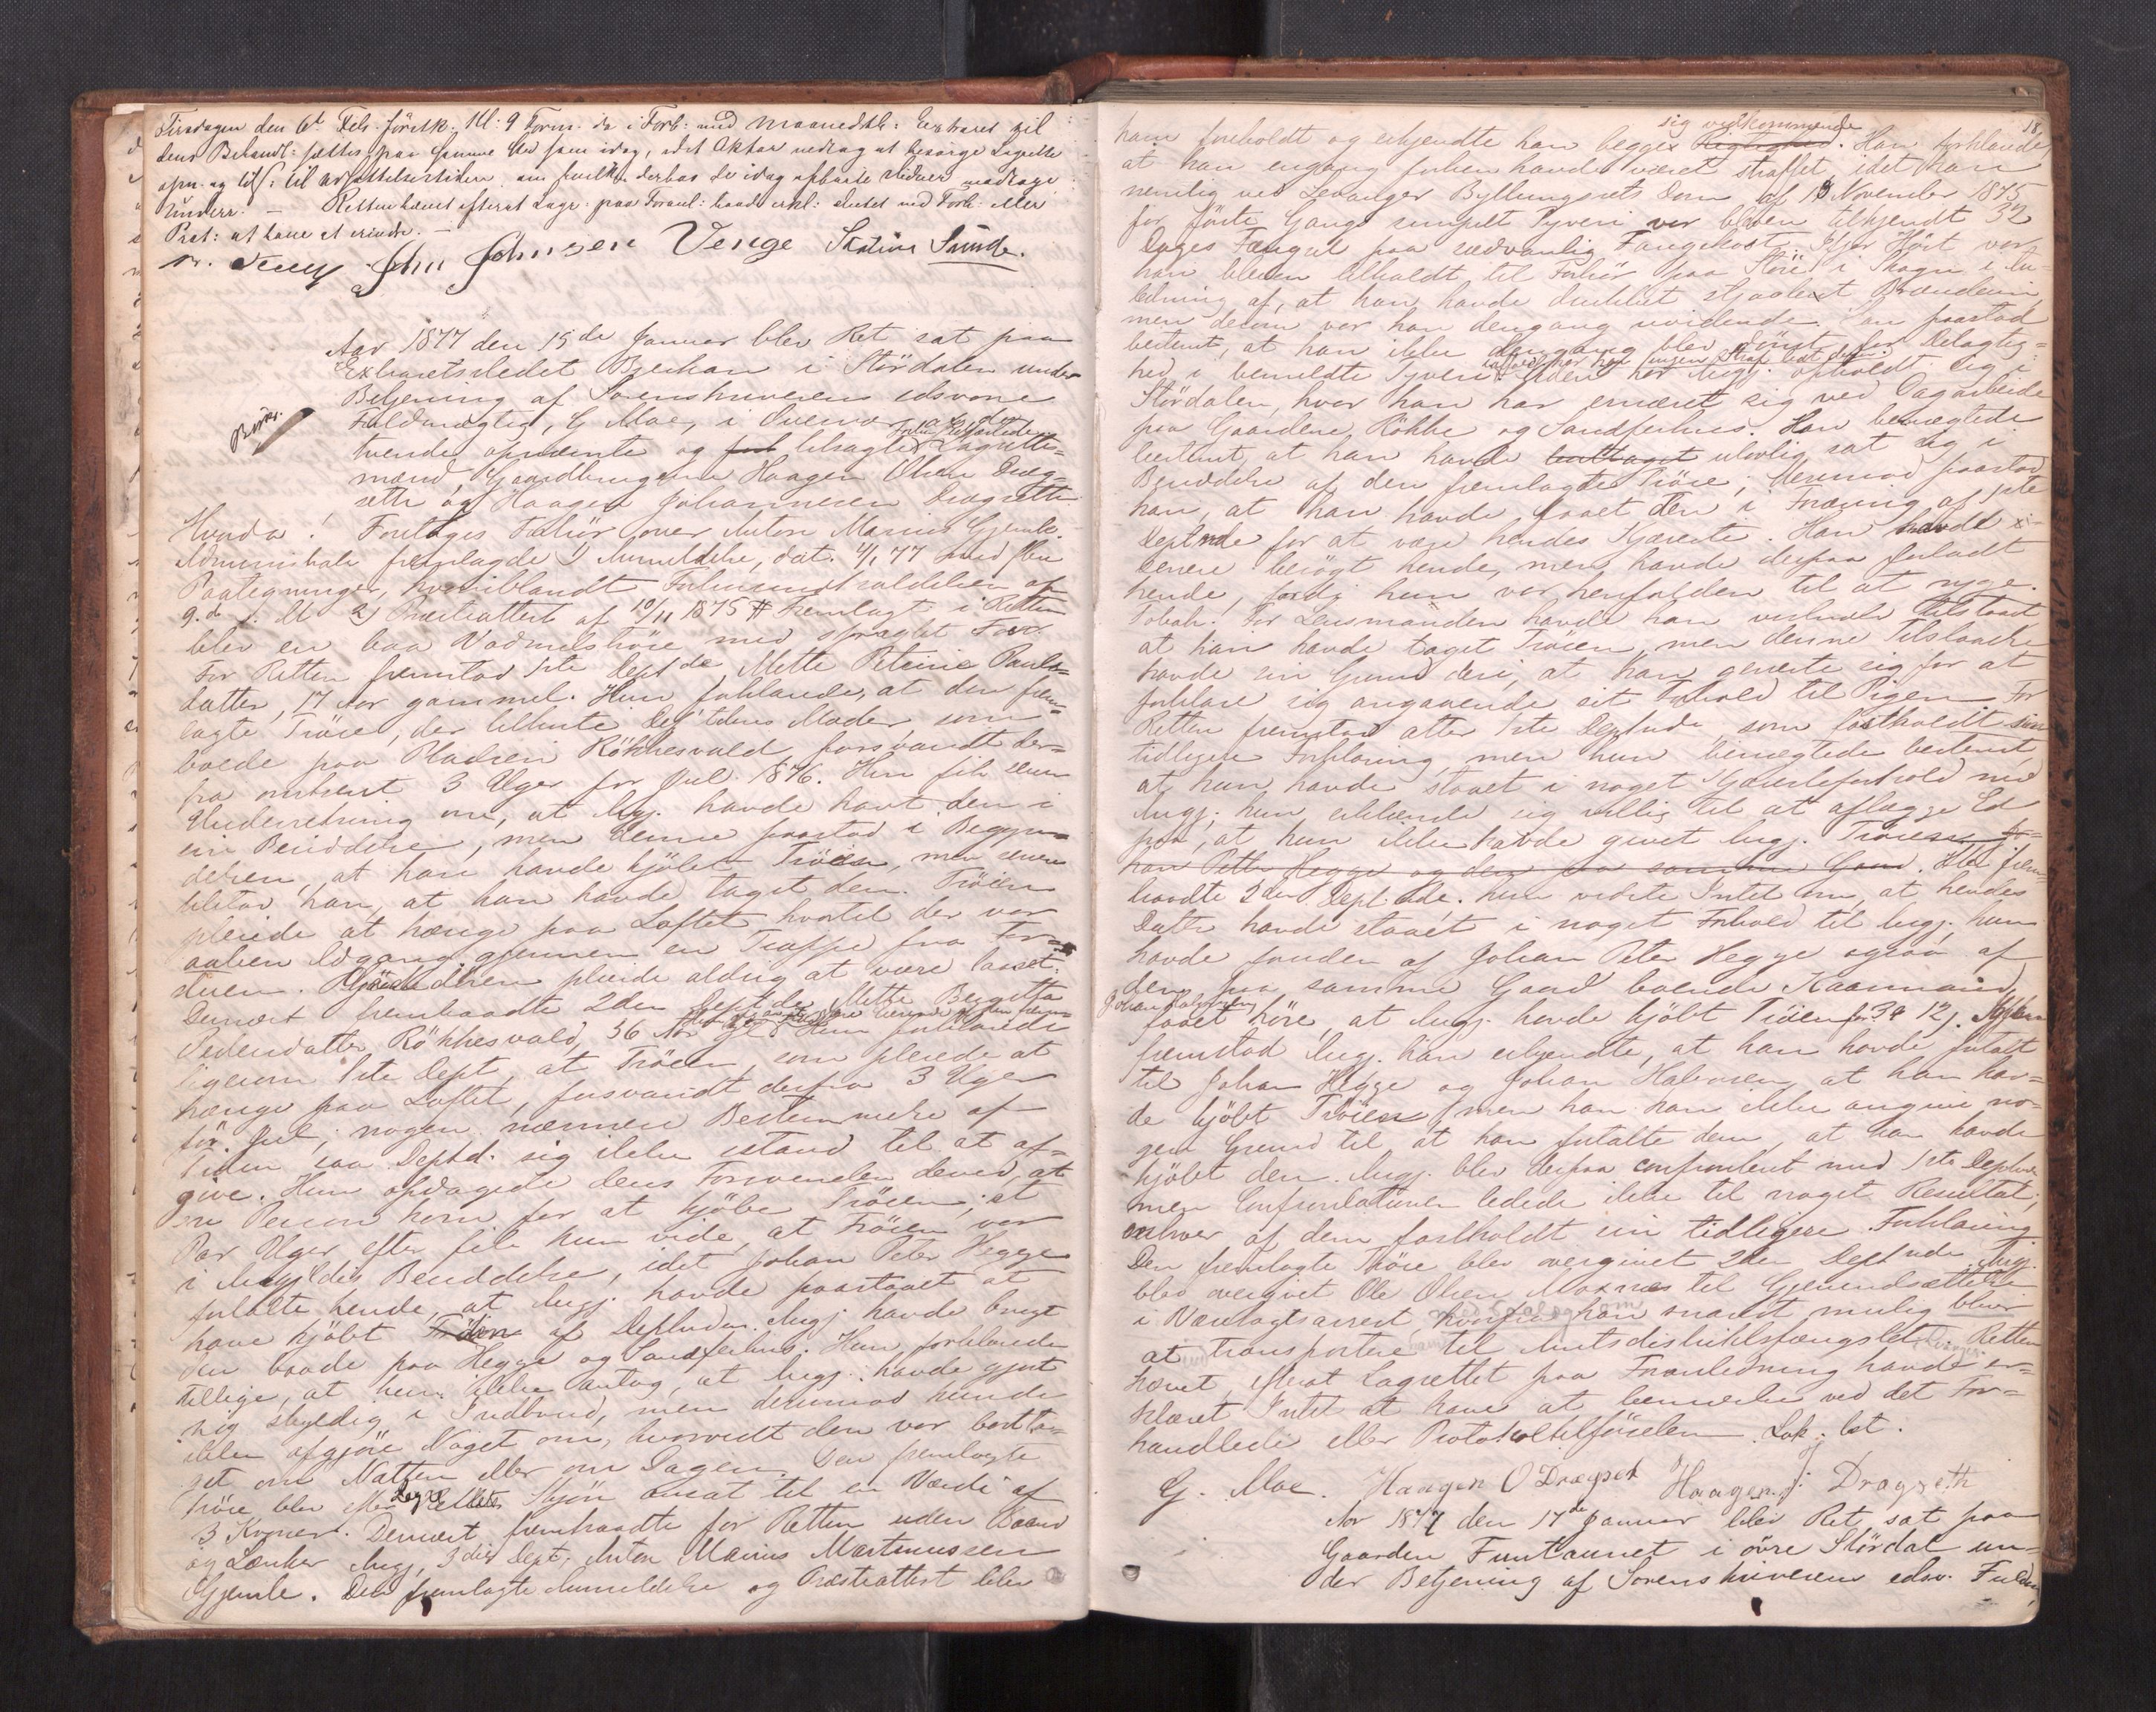 Tirsdagen den 6te Feb. förstk., Kl: 9 Form. da i Forb: med Maanedsth: Extraret til
dens Behandl: sættes paa samme Sted som idag, idet Aktor vedtog at besørge Lagrette
opn. og tils: til
Underr. — Retten hævet efterat Lagr. paa Foranl: havde erkl: Intet ved Forb. eller
Prot: at have at erindre. —
John Johnsen Venge Sunde.
Aar 1877 den 15de Januar blev Ret sat paa
Extraretsstedet Bjerkan i Stördalen under
Betjening af Sorenskriverens edsvorne
Fuldmægtig, G Moe, i Overvær af de
tvende opnævnte og tilsagte Lagrettes-
mænd, Gaardbrugerne Haagen Olsen Dræg-
sette og Haagen Johannesen Drægsette
Hvorda! Foretoges Forhör over Anton Marius Gjemle.
Administrator fremlagde 1) Anmeldelse, dat. 4/1 77 med flere
Paategninger, hvoriblandt Forhørsanstaldelse af
9.de d. M 2) Præsteattest af 10/11 1875 # Fremlagt i Retten
blev en blaa Vadmelströie med spraglet Foer.
For Retten fremstod 1ste Deptde, Mette Petrine Pauls-
datter, 17 Aar gammel. Hun forklarede, at den frem-
lagte Tröie, der tilhörte Deptdens Moder, som
boede paa Pladsen Rökkesvald, forsvandt der-
fra omtrent 3 Uger för Jul 1876. Hun fik senere
Underretning om, at Angj. havde havt den i
sin Besiddelse, men denne paastod i Begyn-
delsen, at han havde kjöbt Tröien, men senere
tilstod han, at han havde taget den. Tröien
pleiede at hænge paa Loftet, hvortil der var
aaben Adgang gjennem en Trappe fra For-
stuen. Yderdören pleiede aldrig at være laaset.
Dernæst fremkaldte 2den Deptde Mette Bergitta
Svendsdatter Rökkesvald, 36 Aar gl. Hun forklarede
ligesom 1ste Dept, at Tröien, som pleiede at
hænge paa Loftet, forsvandt derfra 3 Uger
för Jul; nogen nærmere Bestemmelse af
Tiden saa Deptd. sig ikke istand til at af-
give. Hun opdagede dens Forsvinden derved, at
en Person kom for at kjöbe Tröien; et
Par Uger efter fik hun vide, at Tröien var
i Angjeldtes Besiddelse, idet Johan Peter Hegge
fortalte hende, at Angj. havde paastaaet at
have kjöbt Tröien af Deptnden. Angj havde brugt
den baade paa Hegge og Sandferhus. Hun forklarede
tillige, at hun ikke antog, at Angj. havde gjort
sig skyldig i Indbrud, men derimod kunde
ikke afgjöre Noget om, hvorvidt den var bortta-
get om Natten eller om Dagen. Den fremlagte
Tröie blev efter Lagrettets Skjön ansat til en Værdi af
3 Kroner. Dernæst fremkaldte for Retten uden Baand
og Lænker Angj, 3die Dept, Anton Marius Martinussen
Gjemle. Den fremlagte Anmeldelse og Præsteattest blev
18.
sig vedkommende
ham foreholdt og erkjendte han begges Rigtighed. Han forklarede
at han engang forhen havde været straffet, idet han
nemlig ved Levanger Bythingsrets Dom af 13 November 1875
for förste Gangs simpelt Tyveri var bleven tilkjendt 32
Dages Fængsel paa sædvanlig Fangekost. Ifjor Höst var
han bleven tilholdt til Forhör paa Störe i Skogn i An-
ledning af, at han havde drukket stjaalet Brændevin,
men derom var han dengang uvidende. Han paastod
bestemt, at han ikke dengang blev dömt for Delagtig-
hed i bemeldte Tyveri. Siden har Angj. opholdt sig i
Stördalen, hvor han har ernæret sig ved Dagarbeide
paa Gaardene Rökke og Sandferhus. Han benægtede
bestemt, at han havde ulovlig sat sig i
Besiddelse af den fremlagte Tröie; derimod paastod
han, at han havde faaet den i Foræring af 1ste
Deptnde for at være hendes Kjæreste. Han havde
senere besögt hende, men havde derpaa forladt
hende, fordi hun var henfalden til at ryge
Tobak. For Lensmanden havde han vistnok tilstaaet
at han havde taget Tröien, men denne Tilstaaelse
havde sin Grund deri, at han generte sig for at
forklare sig angaaende sit Forhold til Pigen. For
Retten fremstod atter 1ste Deptnde, som fastholdt sin
tidligere Forklaring, men hun benægtede bestemt,
at hun havde staaet i noget Kjæresteforhold med
Angj; hun erklærede sig villig til at aflægge Ed
paa, at hun ikke havde givet Angj. Tröien
han Peter Hegge og den paa samme Gaard. frem-
kaldte 2den Dept.nde. Hun vidste Intet om, at hendes
Datter havde staaet i noget Forhold til Angj. Hun
havde foruden af Johan Peter Hegge ogsaa af
den paa samme Gaard boende Kaarmand
Johan Halvorsen
faaet höre, at Angj. havde kjöbt Tröien for 12 .
fremstod Angj. Han erkjendte, at han havde fortalt
til Johan Hegge og Johan Halvorsen, at han hav-
de kjöbt Tröien, men han kan ikke angive no-
gen Grund til, at han fortalte dem, at han havde
kjöbt den. Angj. blev derpaa confronteret med 1ste Deptnde
men Confrontationen ledede ikke til noget Resultat;
enhver af dem fastholdt sin tidligere Forklaring.
Den fremlagte Tröie blev overgivet 2den Deptnde. Angj.
blev overgivet Ole Olsen Moxnes til Gjenindsættelse
i Varetægtsarrest, hvorfra han snarest mulig bliver
at transportere til Amtsdistriktsfængslet. Retten
hævet, efterat Lagrettet paa Foranledning havde er-
klæret Intet at have at bemærke ved det For-
handlede eller Protokoltilförselen. Lok. let.
G. Moe. Haagen O Drægset Haagen J. Dragseth
Aar 1877 den 17de Januar blev Ret sat paa
Gaarden Funtaunet i övre Stördal un-
der Betjening af Sorenskriverens edsv. Fuldm.